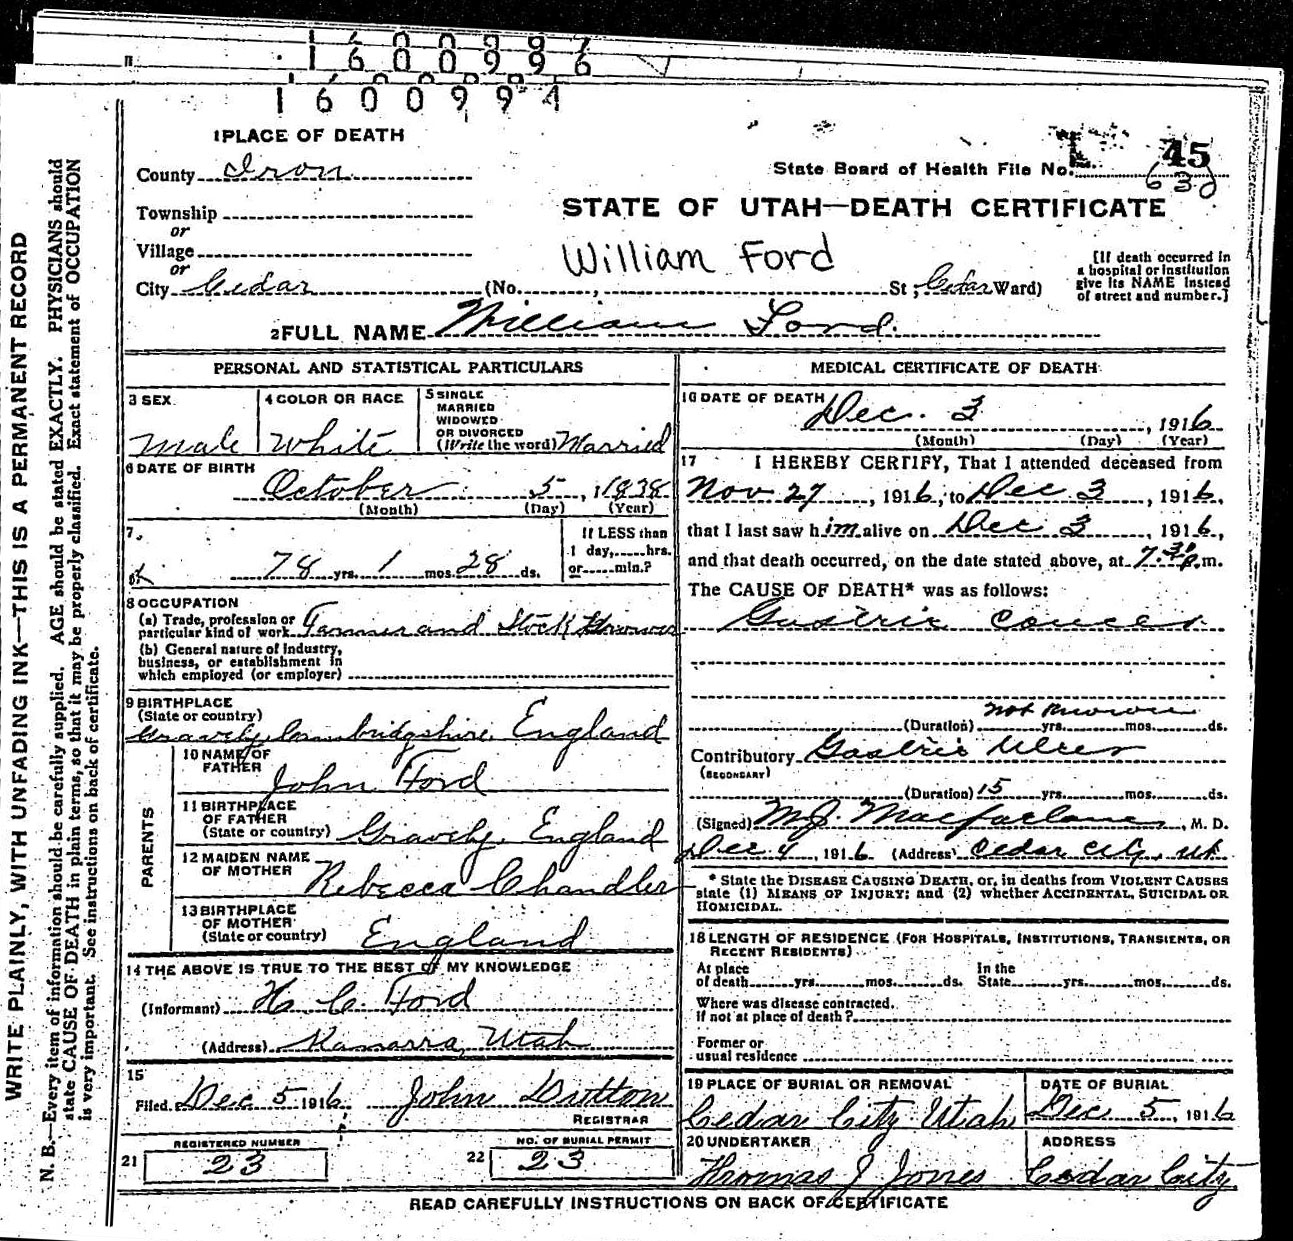 1600996
1600994
1 PLACE OF DEATH
County Iron
State Board of Health File No. 45
630
Township
or
Village
or
City Cedar (No. , St; Cedar Ward)
STATE OF UTAH—DEATH CERTIFICATE
William Ford
[If death occurred in
a hospital or institution
give its NAME instead
of street and number.]
2 FULL NAME William Ford.
PERSONAL AND STATISTICAL PARTICULARS
3 SEX
Male
4 COLOR OR RACE
White
5 SINGLE
MARRIED
WIDOWED
OR DIVORCED
(Write the word) Married
6 DATE OF BIRTH
October 5, 1838
(Month) (Day) (Year)
7.
78 yrs. 1 mos. 28 ds.
If LESS than
1 day,......hrs.
or......min.?
8 OCCUPATION
(a) Trade, profession or
particular kind of work Farmer and Stock Grower
(b) General nature of Industry,
business, or establishment in
which employed (or employer)
9 BIRTHPLACE
(State or country)
Gravely, Cambridgshire, England
PARENTS
10 NAME OF
FATHER
John Ford
11 BIRTHPLACE
OF FATHER
(State or country) Gravely, England
12 MAIDEN NAME
OF MOTHER
Rebecca Chandler
13 BIRTHPLACE
OF MOTHER
(State or country) England
14 THE ABOVE IS TRUE TO THE BEST OF MY KNOWLEDGE
(Informant) H. C. Ford
(Address) Kanarra, Utah
15
Filed Dec 5 1916 John Dutton
REGISTRAR
REGISTERED NUMBER
21 23
NO. OF BURIAL PERMIT
22 23
MEDICAL CERTIFICATE OF DEATH
16 DATE OF DEATH
Dec. 3, 1916
(Month) (Day) (Year)
17 I HEREBY CERTIFY, That I attended deceased from
Nov 27, 1916, to Dec 3, 1916,
that I last saw him alive on Dec 3, 1916,
and that death occurred, on the date stated above, at 7:30 p.m.
The CAUSE OF DEATH* was as follows:
Gastric Cancer
not known
(Duration) yrs. mos. ds.
Contributory Gastric Ulcer
(SECONDARY)
(Duration) 15 yrs. mos. ds.
(Signed) M.J. Macfarlane, M. D.
Dec 4, 1916 (Address) Cedar City, Ut
* State the DISEASE CAUSING DEATH, or, in deaths from VIOLENT CAUSES
state (1) MEANS OF INJURY; and (2) whether ACCIDENTAL, SUICIDAL OR
HOMICIDAL.
18 LENGTH OF RESIDENCE (FOR HOSPITALS, INSTITUTIONS, TRANSIENTS, OR
RECENT RESIDENTS)
At place
of death yrs. mos. ds.
In the
State yrs. mos. ds.
Where was disease contracted,
if not at place of death?
Former or
usual residence
19 PLACE OF BURIAL OR REMOVAL
Cedar City Utah
DATE OF BURIAL
Dec 5, 1916
20 UNDERTAKER
Thomas J Jones
ADDRESS
Cedar City
READ CAREFULLY INSTRUCTIONS ON BACK OF CERTIFICATE
WRITE PLAINLY, WITH UNFADING INK—THIS IS A PERMANENT RECORD
N. B.—Every item of information should be carefully supplied. AGE should be stated EXACTLY. PHYSICIANS should
state CAUSE OF DEATH in plain terms, so that it may be properly classified. Exact statement of OCCUPATION
is very important. See instructions on back of certificate.